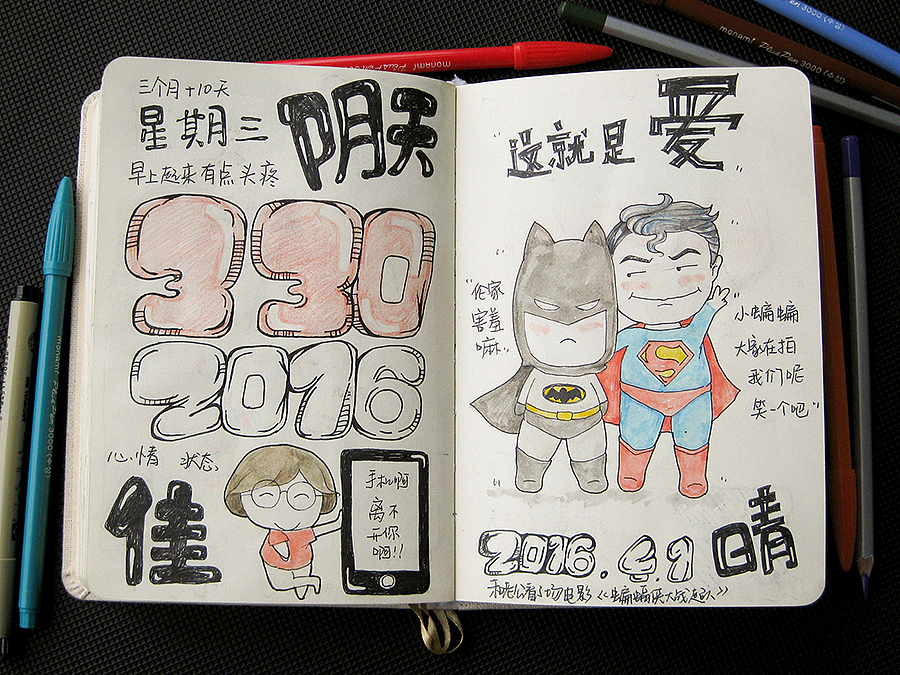 三个月+10天
星期三 阴天
早上起来有点头疼
330
2016
心情 状态
佳
手机啊
离不
开你
啊!!
"这就是爱"
"伦家
害羞
嘛"
"小蝙蝙
大家在拍
我们呢
笑一个吧"
2016.4.1 晴
和老公看了场电影《蝙蝠侠大战超人》
monami Plus Pen 3000
monami Plus Pen 3000 (수성)
monami Plus Pen 3000
Pen 3000 (수성)